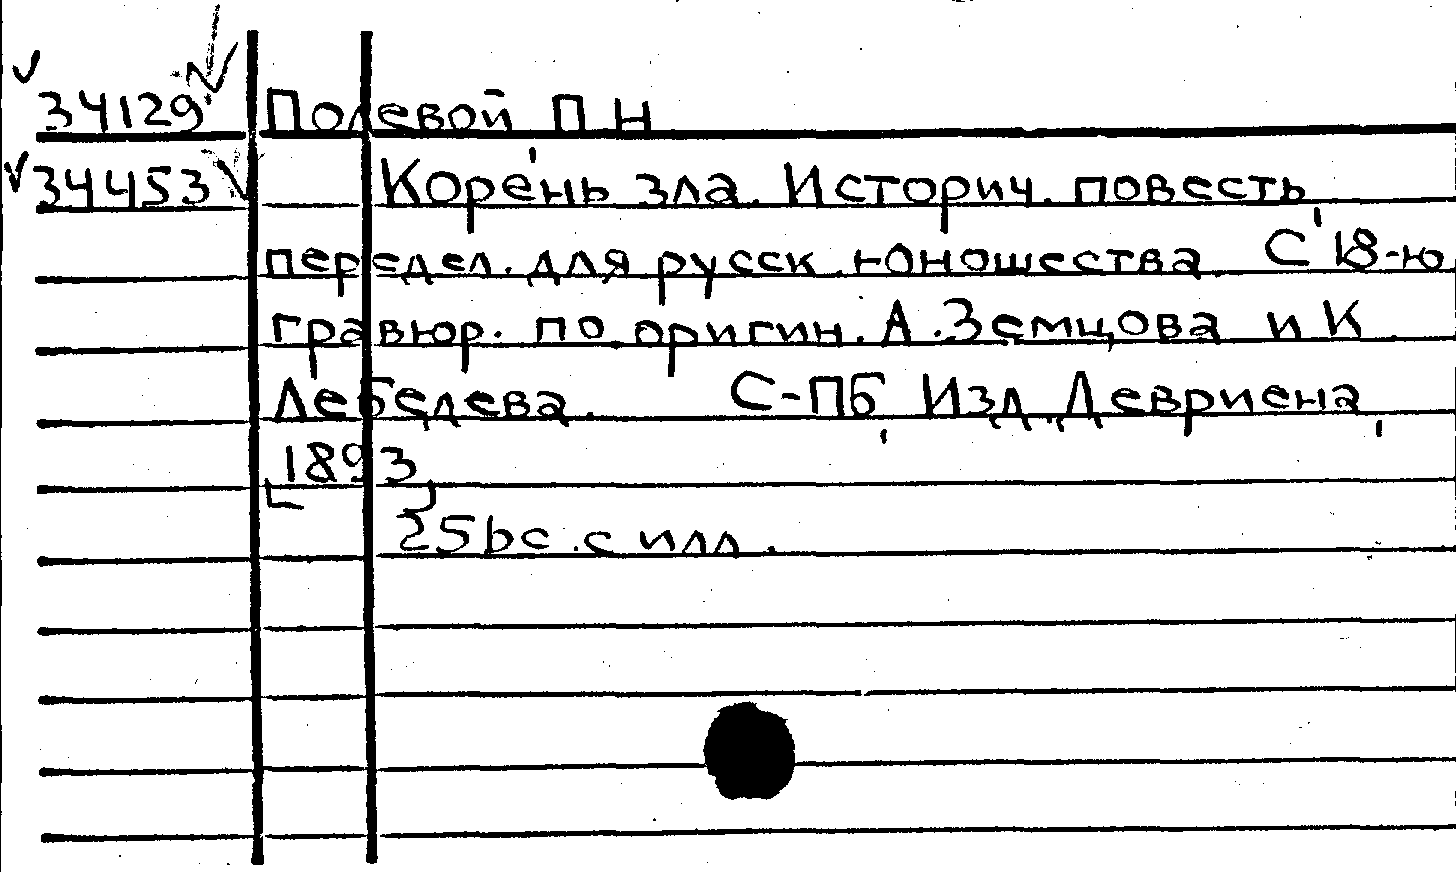 34129 Полевой П Н
34453 Корень зла. Историч. повесть,
передел. для русск. юношества. С 18-ю
гравюр. по оригин. А. Земцова и К
Лебедева. С-Пб, Изд. Девриена,
1893
256с. с илл.